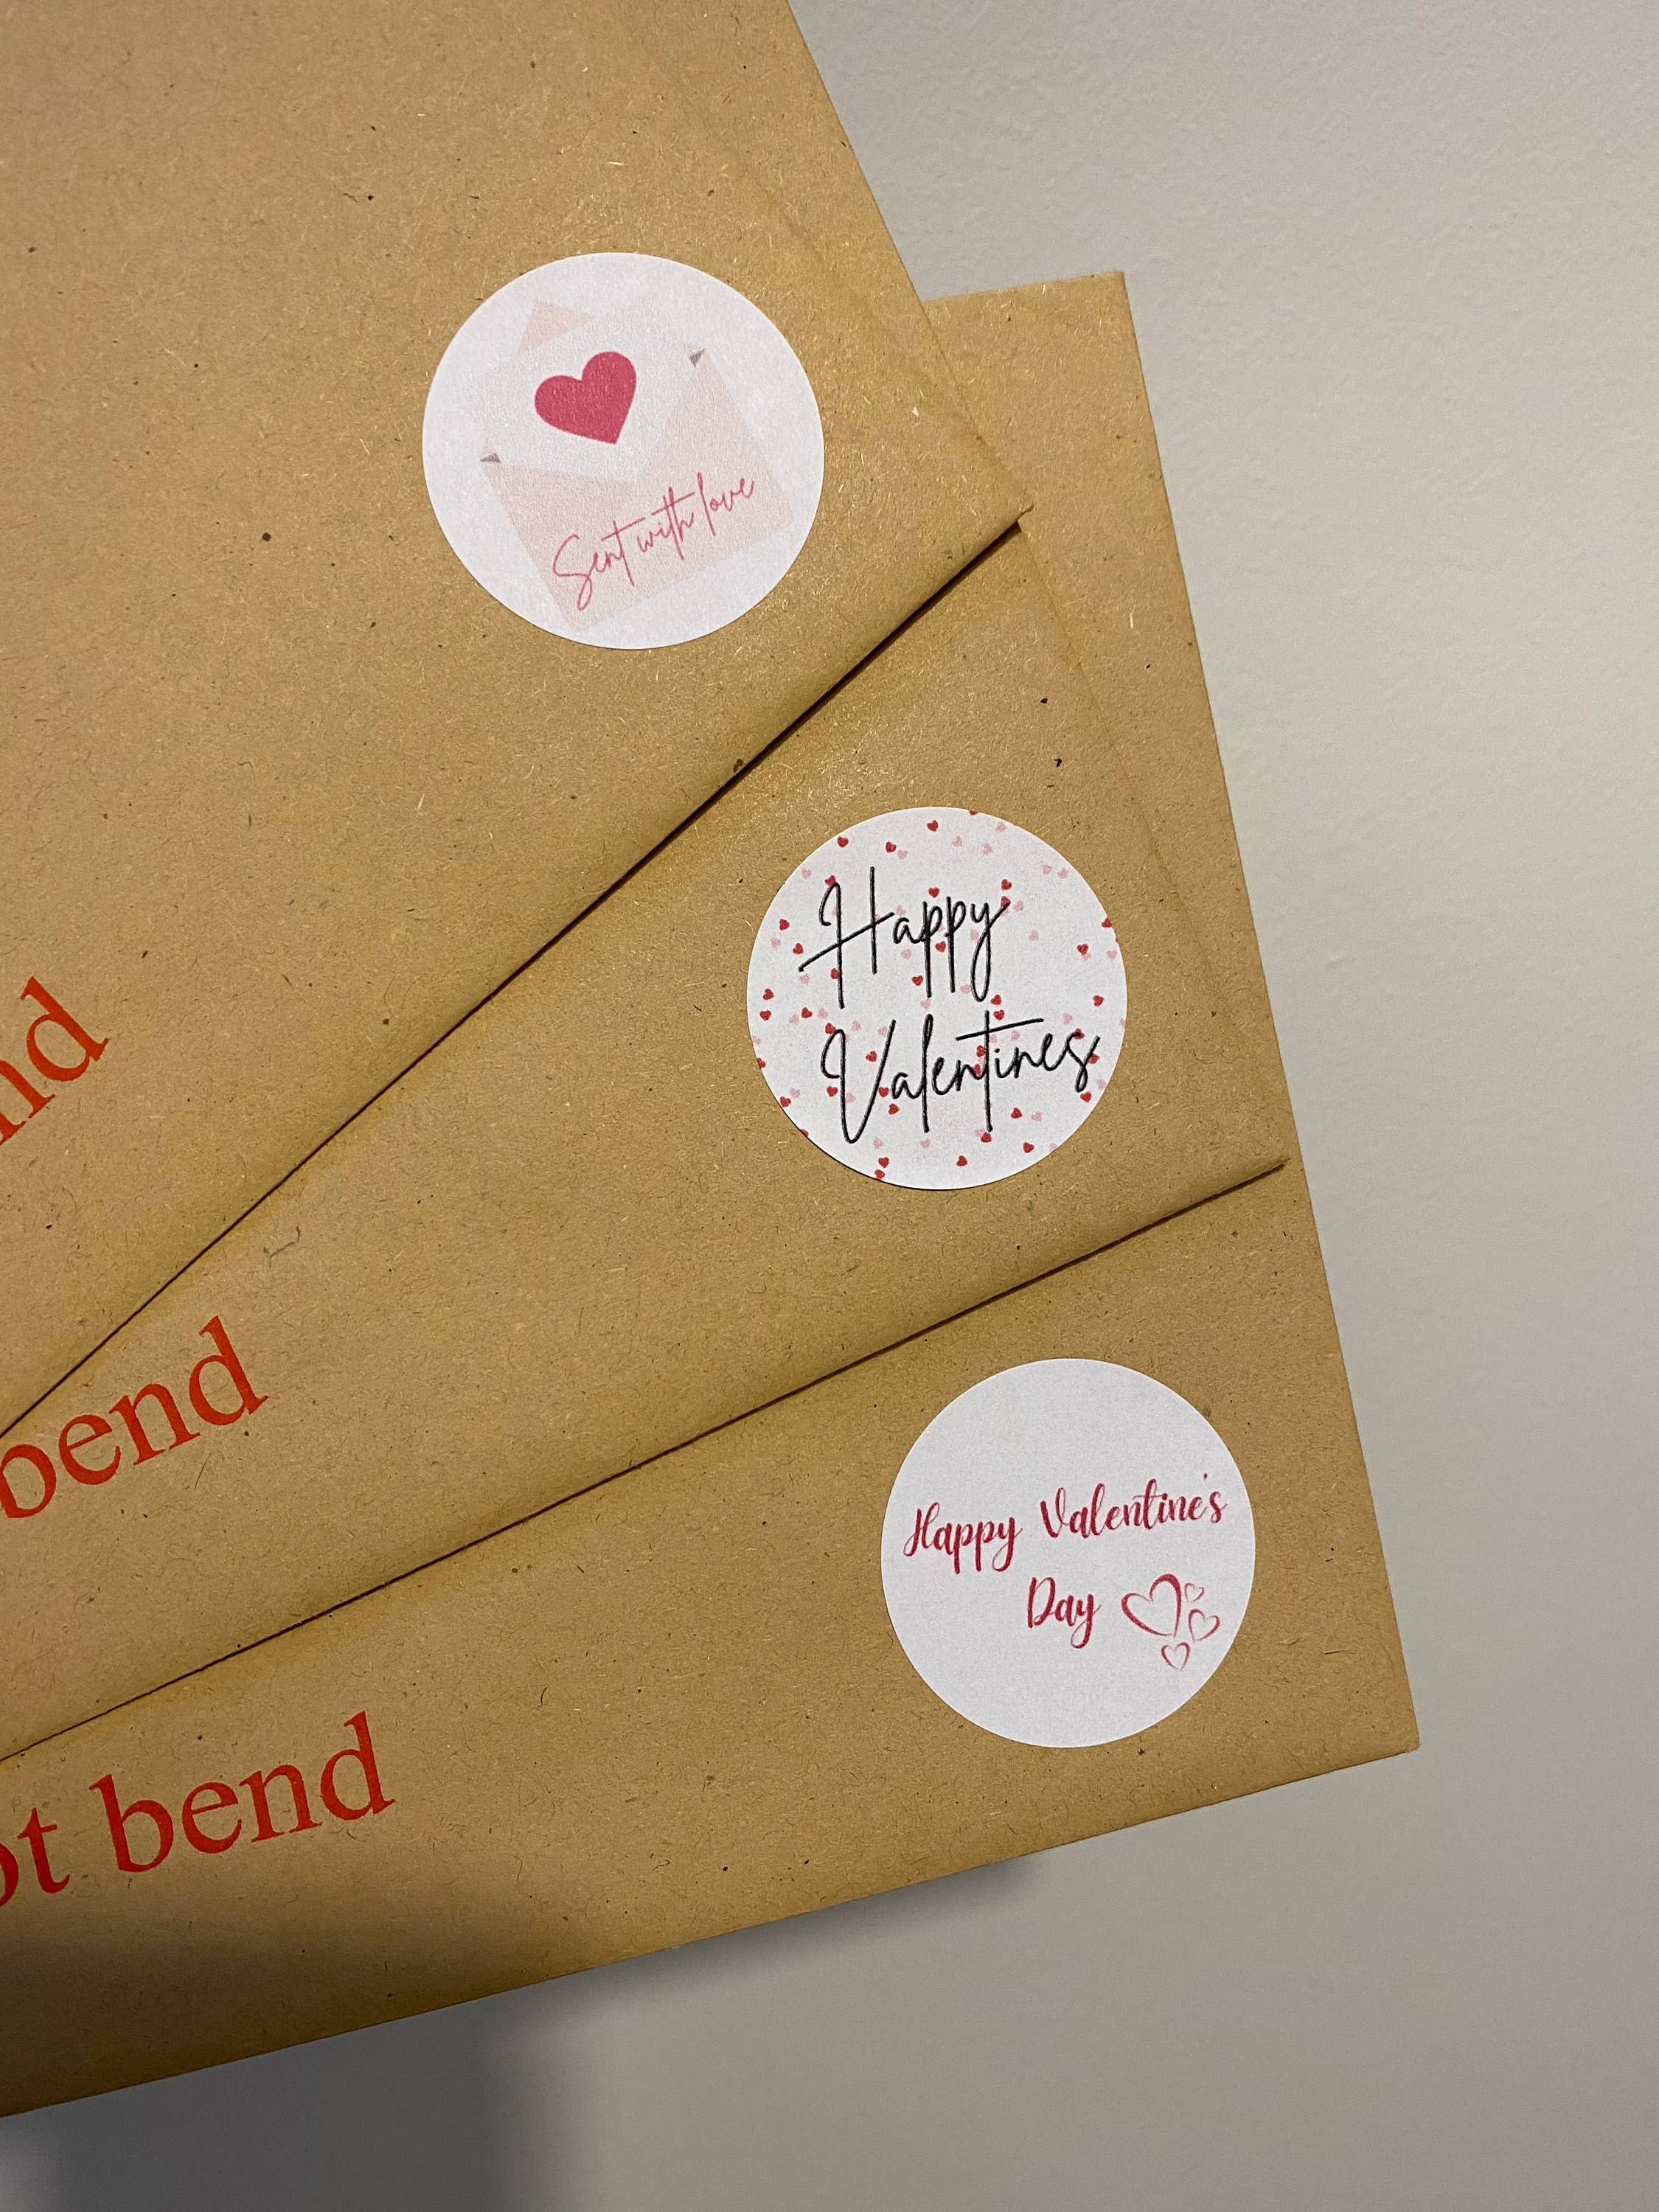 Sent with love
Happy
Valentines
nd
bend
Happy Valentine's
Day
ot bend